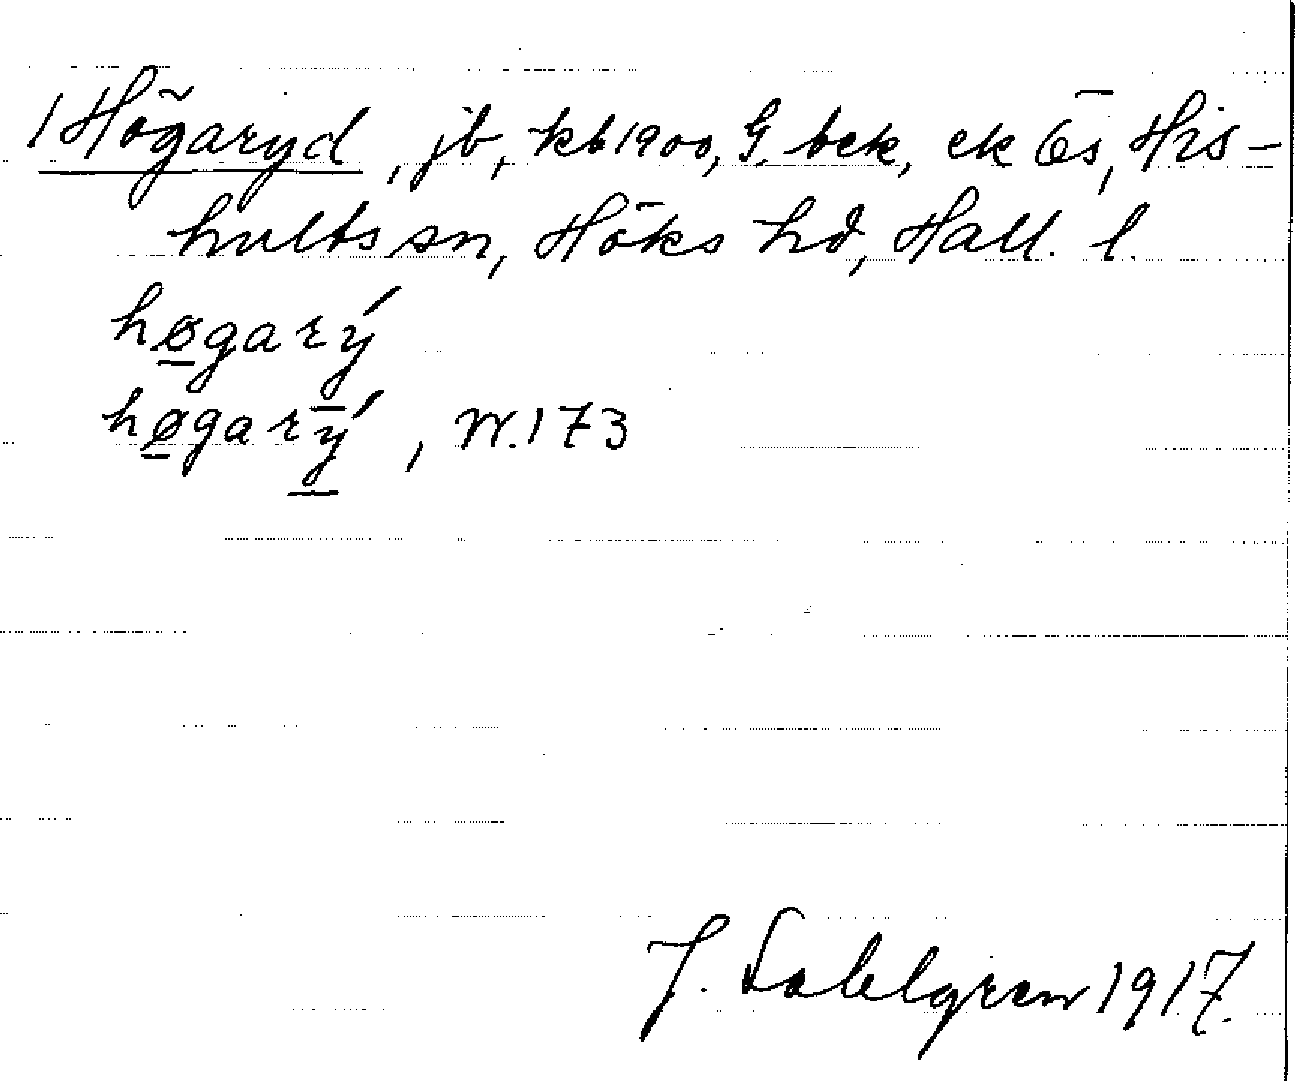 1 Högaryd, jb, kb 1900, G. bek, ek Ös, His-
hults sn, Höks hd, Hall. l.
høgarý
høgarý, W. 173
J. Sahlgren 1917.